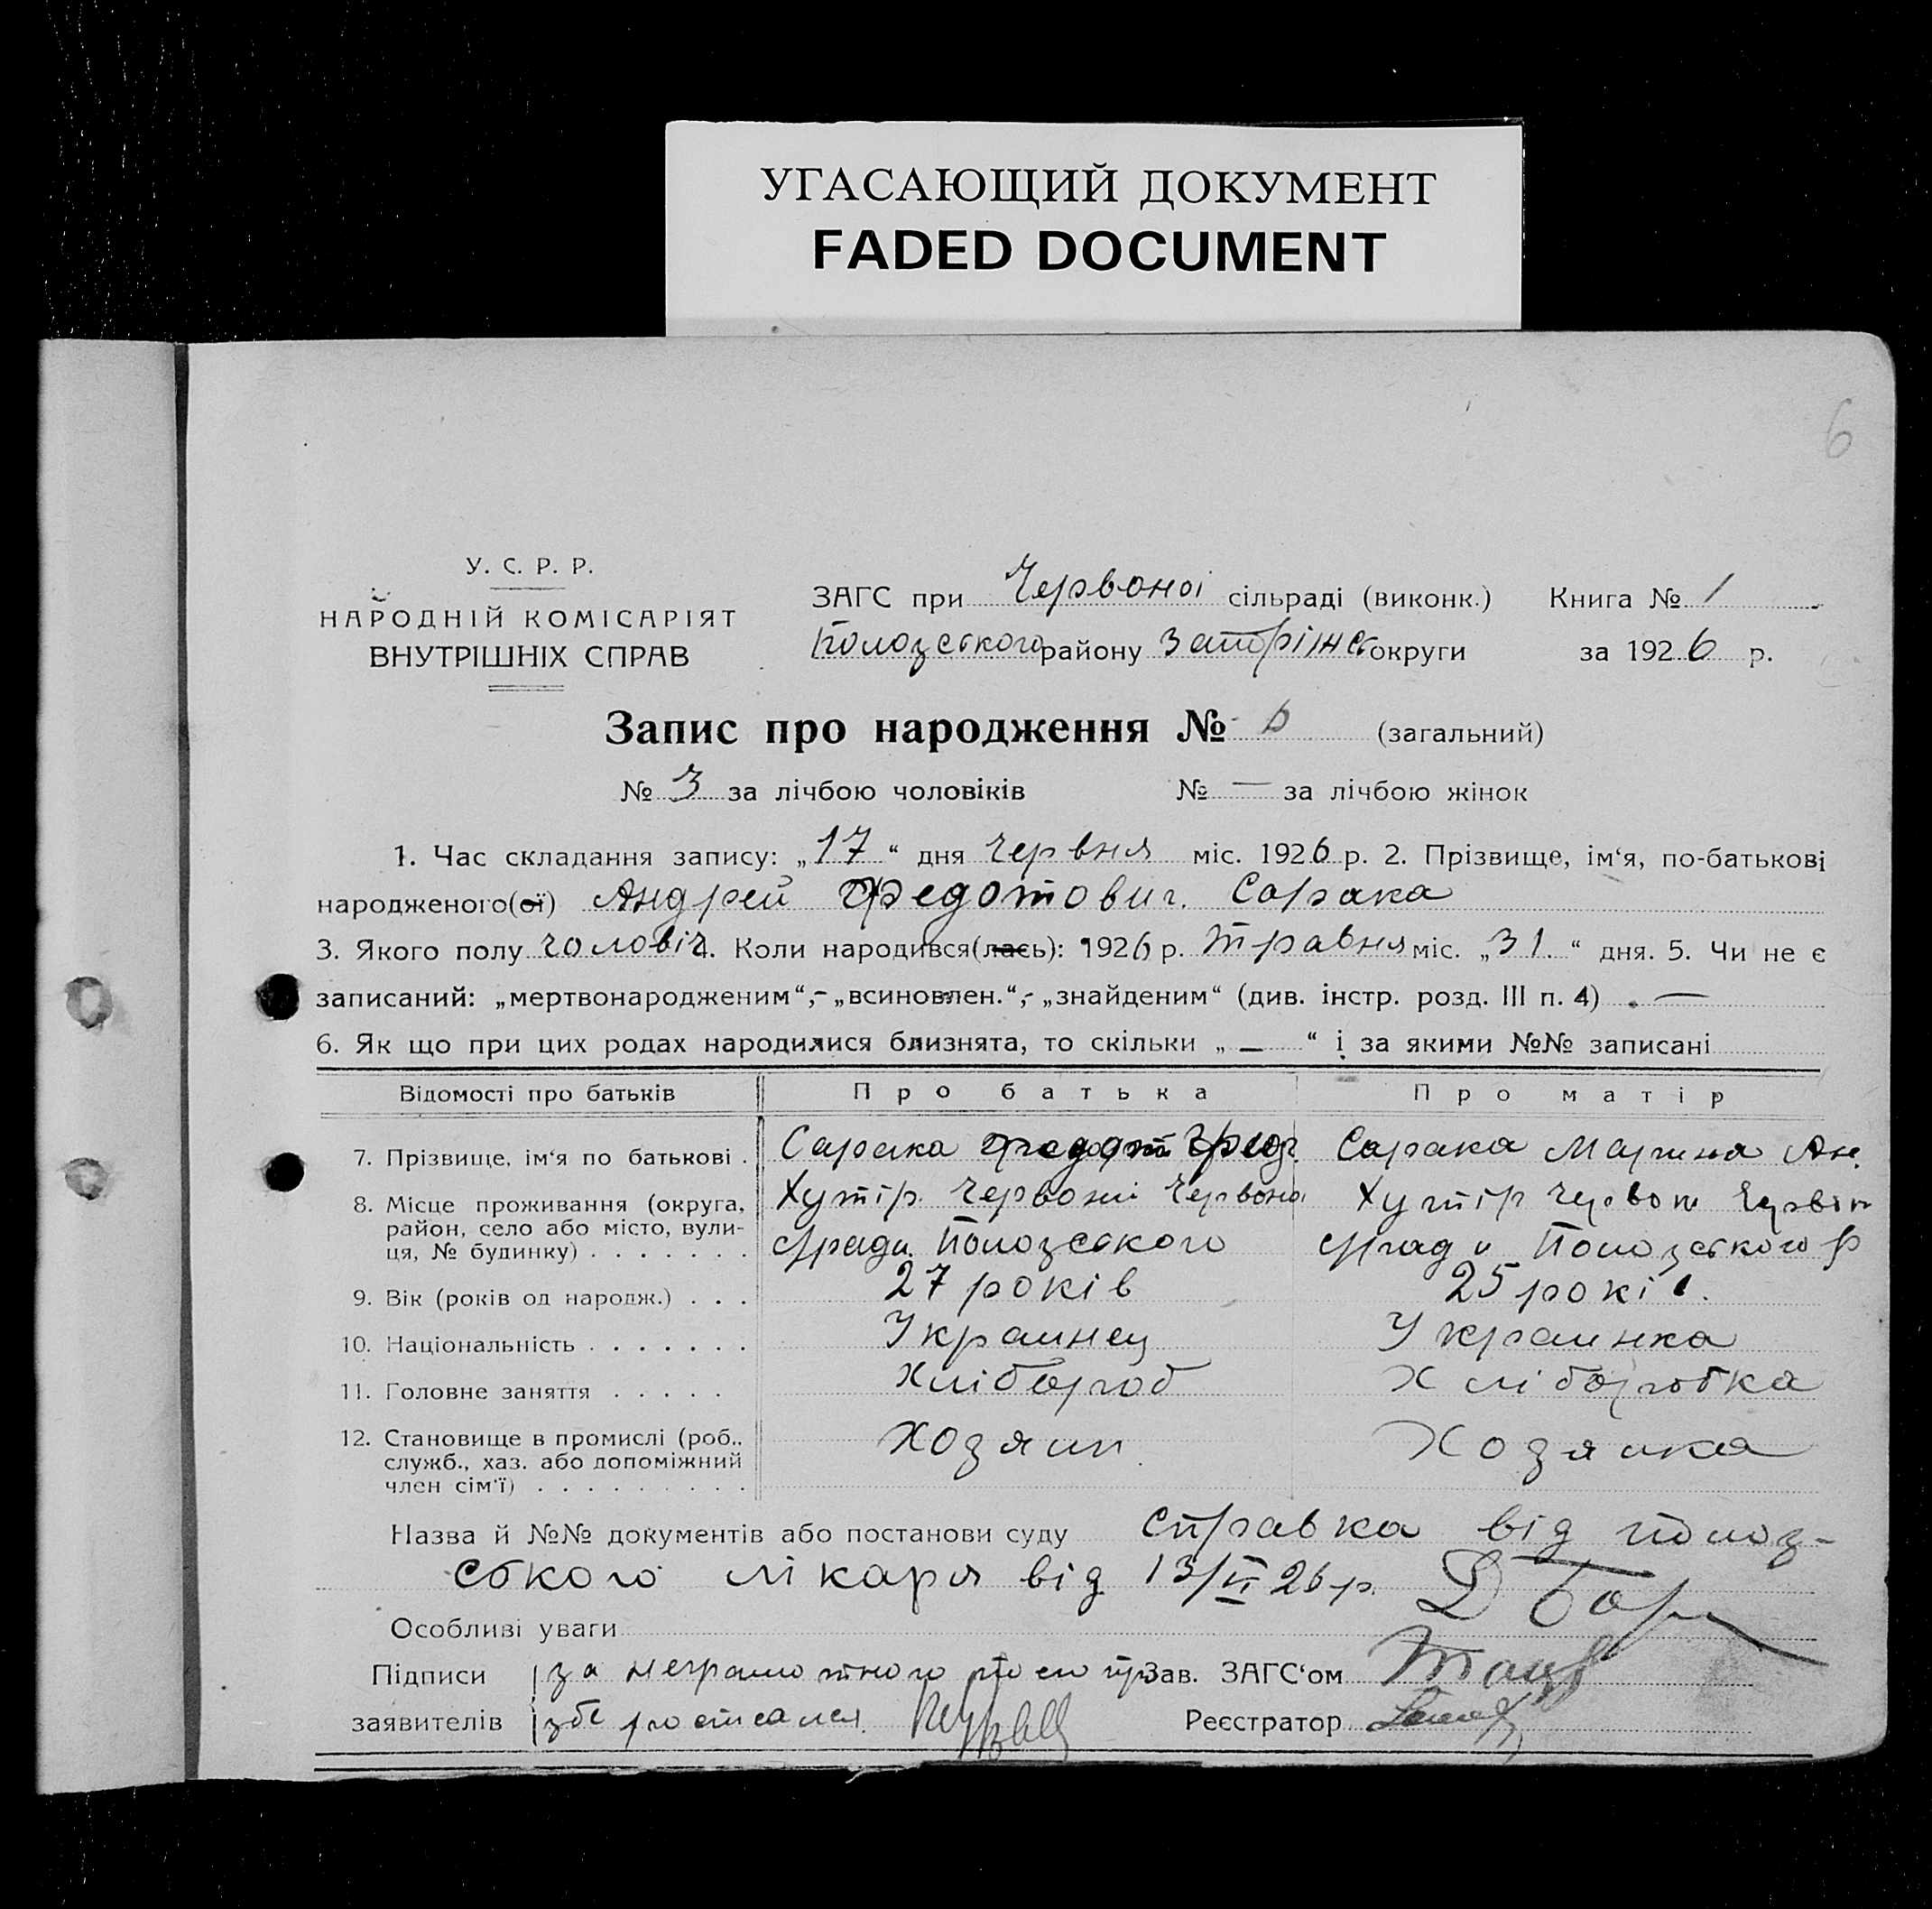 УГАСАЮЩИЙ ДОКУМЕНТ
FADED DOCUMENT
6
У. С. Р. Р.
НАРОДНІЙ КОМІСАРІЯТ
ВНУТРІШНІХ СПРАВ
ЗАГС при Червоної сільраді (виконк.) Книга № 1
Пологзського району Запоріжс округи за 1926 р.
Запис про народження № 6 (загальний)
№ 3 за лічбою чоловіків № — за лічбою жінок
1. Час складання запису: „17“ дня Червня міс. 1926 р. 2. Прізвище, ім‘я, по-батькові
народженого(ої) Андрей Федотович. Сорока
3. Якого полу чоловіч. 4. Коли народився(лась): 1926 р. Травня міс. „31.“ дня. 5. Чи не є
записаний: „мертвонародженим“,- „всиновлен.“,- „знайденим“ (див. інстр. розд. III п. 4) . —
6. Як що при цих родах народилися близнята, то скільки „ — “ і за якими №№ записані
Відомості про батьків Про батька Про матір
7. Прізвище, ім‘я по батькові . Сорака Федот Сорака Марина Ан.
8. Місце проживання (округа, район, село або місто, вулиця, № будинку) . . . . . . . Хутір Червоний Хутір Червон
с/ради Пологзського с/ради Пологзського р
9. Вік (років од народж.) . . . 27 років 25 років.
10. Національність . . . . . . . Украинец Украинка
11. Головне заняття . . . . . Хлібороб Хліборобка
12. Становище в промислі (роб., служб., хаз. або допоміжний член сім‘ї) . . . . . . . . . Хозяин Хозяика
Назва й №№ документів або постанови суду справка від полог-
ського лікаря від 13/VI 26 р.
Особливі уваги
Підписи за неграмотного по его Зав. ЗАГС‘ом
заявителів росписался Реєстратор